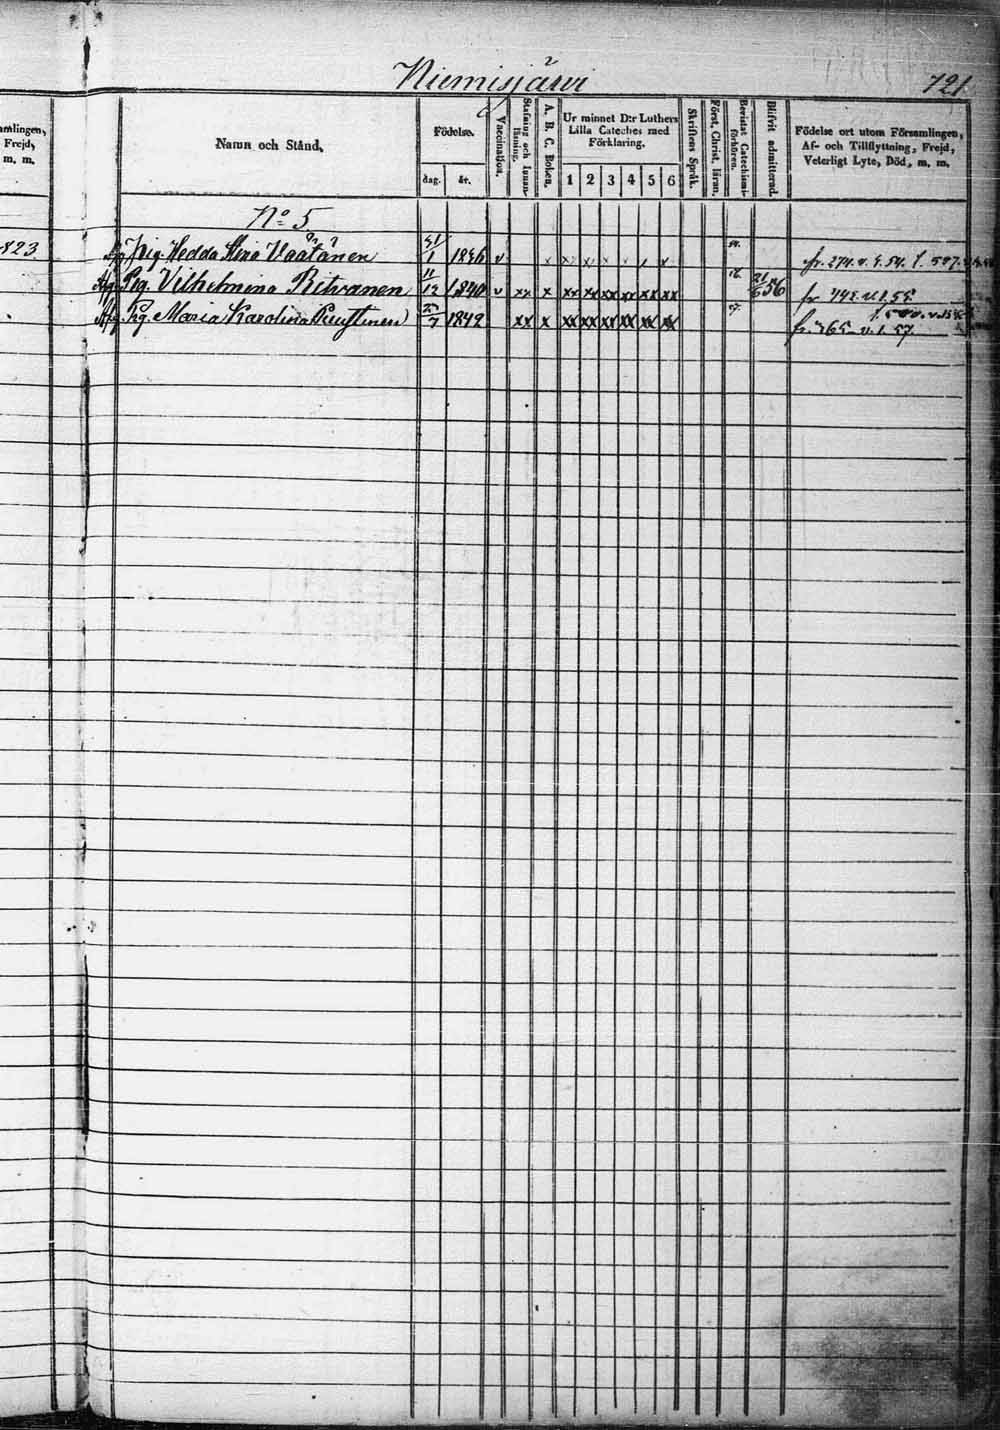 Niemisjärvi
721.
amlingen,
Frejd,
m. m.
Namn och Stånd.
Födelse.
dag. år.
Vaccination.
Stafning och Innan-
läsning.
A. B. C. Boken.
Ur minnet D:r Luthers
Lilla Cateches med
Förklaring.
1 2 3 4 5 6
Skriftens Språk.
Först. Christ. läran.
Bevistat Catechismi-
förhören.
Blifvit admitterad.
Födelse ort utom Församlingen,
Af- och Tillflyttning, Frejd,
Veterligt Lyte, Död, m. m.
No 5
823
Pig. Hedda Stina Väätänen 31/1 1836 v x x x x x x fr. 274. v. 54. f. 587.
Pig. Vilhelmina Ritvanen 11/12 1840 v xx x xx xx xx xx xx xx 21/6 56 fr 442. v. 55
Pig. Maria Karolina 1842 xx x xx xx xx xx xx xx 57. fr. 365 v. 57.